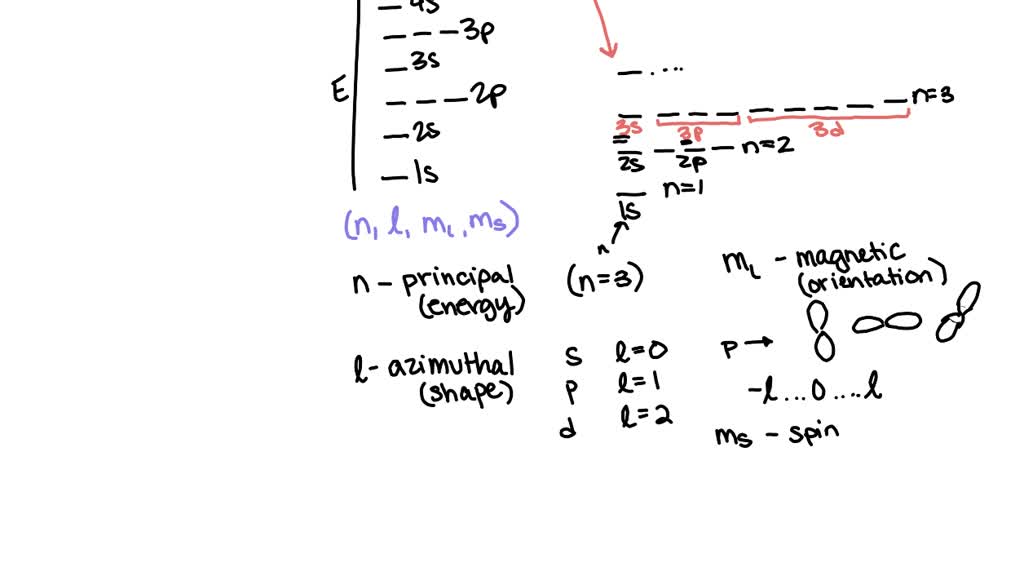 4s
3p
3s
E
2p
2s
1s
....
n=3
3s 3p 3d
2s 2p n=2
n=1
1s
n
(n, l, ml, ms)
n - principal (n=3)
(energy)
l - azimuthal
(shape)
s l=0
p l=1
d l=2
ml - magnetic
(orientation)
p →
-l ... 0 .... l
ms - spin